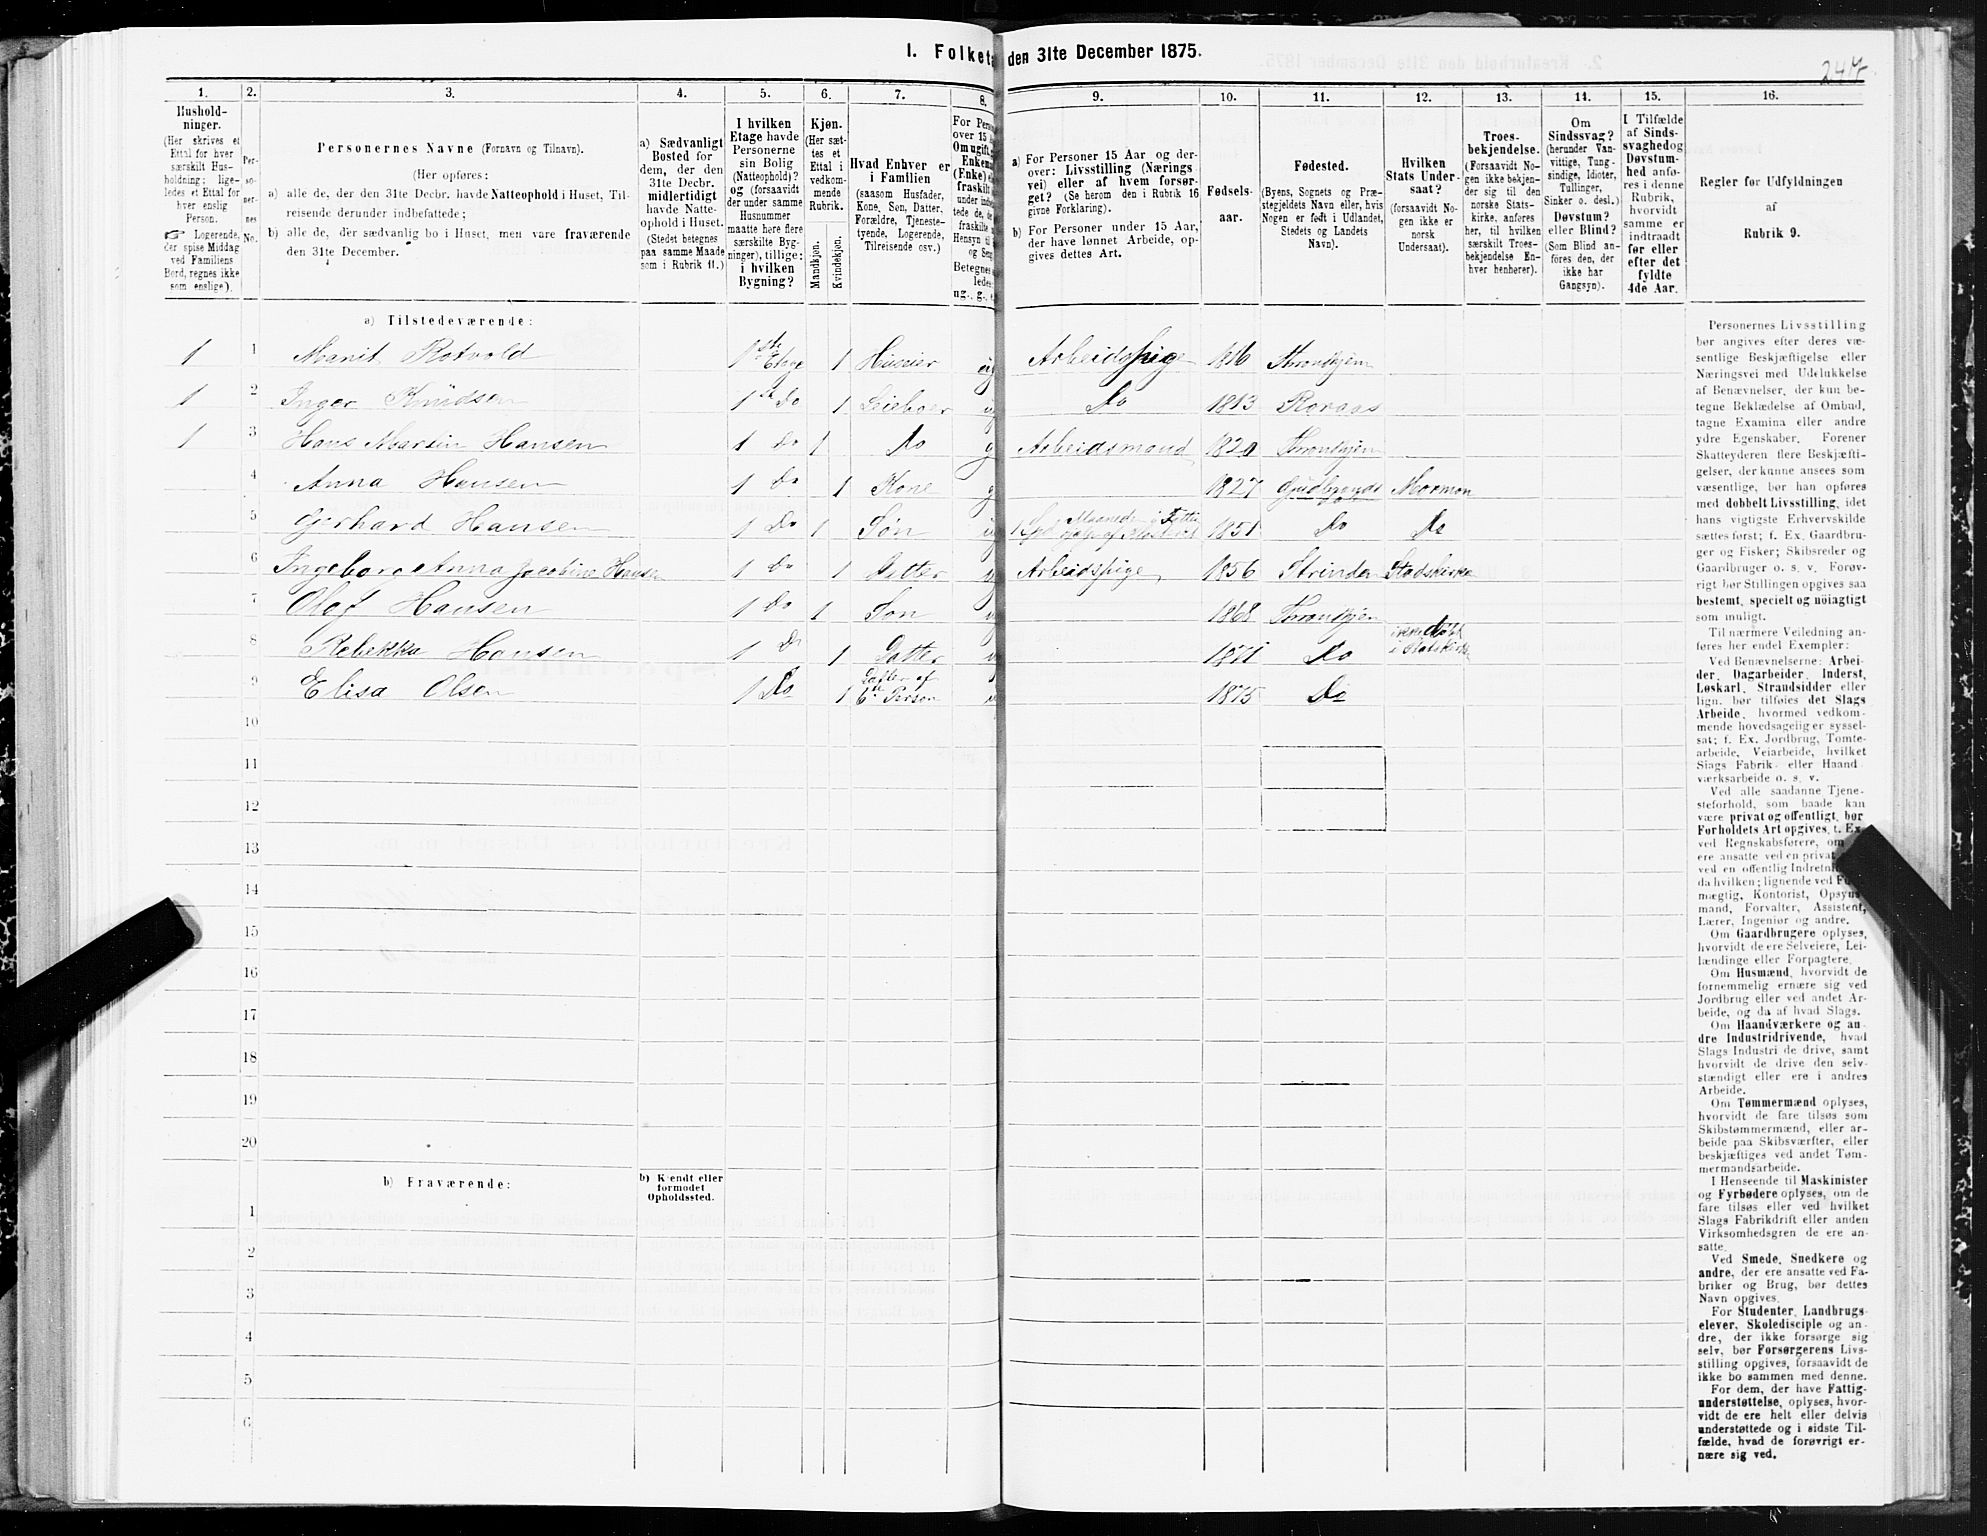 I. Folketæ den 31te December 1875.
247
1. 2. 3. 4. 5. 6. 7. 8. 9. 10. 11. 12. 13. 14. 15. 16.
Hushold-
ninger.
(Her skrives et
Ettal for hver
særskilt Hus-
holdning; lige-
ledes et Ettal for
hver enslig
Person.
☞ Logerende,
der spise Middag
ved Familiens
Bord, regnes ikke
som enslige).
Per-
so-
ner-
nes
No.
Personernes Navne (Fornavn og Tilnavn).
(Her opføres:
a) alle de, der den 31te Decbr. havde Natteophold i Huset, Til-
reisende derunder indbefattede;
b) alle de, der sædvanlig bo i Huset, men vare fraværende
den 31te December.
a) Sædvanligt
Bosted for
dem, der den
31te Decbr.
midlertidigt
havde Natte-
ophold i Huset.
(Stedet betegnes
paa samme Maade
som i Rubrik 11.)
I hvilken
Etage havde
Personerne
sin Bolig
(Natteophold)?
og (forsaavidt
der under samme
Husnummer
maatte høre flere
særskilte Byg-
ninger), tillige:
i hvilken
Bygning?
Kjøn.
(Her sæt-
tes et
Ettal i
vedkom-
mende
Rubrik.
Mandkjøn.
Kvindekjøn.
Hvad Enhver er
i Familien
(saasom Husfader,
Kone, Søn, Datter,
Forældre, Tjeneste-
tyende, Logerende,
Tilreisende osv.)
For Perso
over 15 A
Om ugift, g
Enkema
(Enke) e
fraskilt
under inde
tede de, de
fraskilte
Hensyn til
og Sen
Betegnes
ledes:
ug., g., e
a) For Personer 15 Aar og der-
over: Livsstilling (Nærings
vei) eller af hvem forsør-
get? (Se herom den i Rubrik 16
givne Forklaring).
b) For Personer under 15 Aar,
der have lønnet Arbeide, op-
gives dettes Art.
Fødsels-
aar.
Fødested.
(Byens, Sognets og Præ-
stegjeldets Navn eller, hvis
Nogen er født i Udlandet,
Stedets og Landets
Navn).
Hvilken
Stats Under-
saat?
(forsaavidt No-
gen ikke er
norsk
Undersaat).
Troes-
bekjendelse.
(Forsaavidt No-
gen ikke bekjen-
der sig til den
norske Stats-
kirke, anføres
her, til hvilken
særskilt Troes-
bekjendelse En-
hver henhører).
Om
Sindssvag?
(herunder Van-
vittige, Tung-
sindige, Idioter,
Tullinger,
Sinker o. desl.)
Døvstum?
eller Blind?
(Som Blind an-
føres den, der
ikke har
Gangsyn).
I Tilfælde
af Sinds-
svaghed og
Døvstum-
hed anfø-
res i denne
Rubrik,
hvorvidt
samme er
indtraadt
før eller
efter det
fyldte
4de Aar.
Regler for Udfyldningen
af
Rubrik 9.
a) Tilstedeværende:
1 1 Marit Rotvold 1ste Etage 1 Huseier ug Arbeidspige 1816 Throndhjem
1 2 Inger Knudsen 1 Do 1 Leieboer ug Do 1813 Roraas
1 3 Hans Martin Hansen 1 Do 1 Do g Arbeidsmand 1820 Throndhjem
4 Anna Hansen 1 Do 1 Kone g 1827 Gudbrands Mormon
5 Gerhard Hansen 1 Do 1 Søn ug 1851 Do Do
6 Ingeborg Anna Jacobine Hansen 1 Do 1 Datter ug Arbeidspige 1856 Strinden Statskirke
7 Olaf Hansen 1 Do 1 Søn 1868 Throndhjem
8 Rebekka Hansen 1 Do 1 Datter 1871 Do ikke døbt
i Statskirke
9 Elisa Olsen 1 Do 1 Datter af
6te Person 1875 Do
10
11
12
13
14
15
16
17
18
19
20
b) Fraværende:
b) Kjendt eller
formodet
Opholdssted.
1
2
3
4
5
6
Personernes Livsstilling
bør angives efter deres væ-
sentlige Beskjæftigelse eller
Næringsvei med Udelukkelse
af Benævnelser, der kun be-
tegne Beklædelse af Ombud,
tagne Examina eller andre
ydre Egenskaber. Forener
Skatteyderen flere Beskjæfti-
gelser, der kunne ansees som
væsentlige, bør han opføres
med dobbelt Livsstilling, idet
hans vigtigste Erhvervskilde
sættes først; f. Ex. Gaardbru-
ger og Fisker; Skibsreder og
Gaardbruger o. s. v. Forøv-
rigt bør Stillingen opgives saa
bestemt, specielt og nöiagtigt
som muligt.
Til nærmere Veiledning an-
føres her endel Exempler:
Ved Benævnelserne: Arbei-
der, Dagarbeider, Inderst,
Løskarl, Strandsidder eller
lign. bør tilføies det Slags
Arbeide, hvormed vedkom-
mende hovedsagelig er syssel-
sat; f. Ex. Jordbrug, Tomte-
arbeide, Veiarbeide, hvilket
Slags Fabrik- eller Haand-
værksarbeide o. s. v.
Ved alle saadanne Tjene-
steforhold, som baade kan
være privat og offentligt, bør
Forholdets Art opgives, t. Ex.
ved Regnskabsførere, om
ere ansatte ved en privat
ved en offentlig Indretn
da hvilken; lignende ved Fu
mægtig, Kontorist, Opsyns
mand, Forvalter, Assistent,
Lærer, Ingeniør og andre.
Om Gaardbrugere oplyses,
hvorvidt de ere Selveiere, Lei-
lændinge eller Forpagtere.
Om Husmænd, hvorvidt de
fornemmelig ernære sig ved
Jordbrug eller ved andet Ar-
beide, og da af hvad Slags.
Om Haandværkere og an-
dre Industridrivende, hvad
Slags Industri de drive, samt
hvorvidt de drive den selv-
stændigt eller ere i andres
Arbeide.
Om Tømmermænd oplyses,
hvorvidt de fare tilsøs som
Skibstømmermænd, eller ar-
beide paa Skibsværfter, eller
beskjæftiges ved andet Tøm-
mermandsarbeide.
I Henseende til Maskinister
og Fyrbødere oplyses, om de
fare tilsøs eller ved hvilket
Slags Fabrikdrift eller anden
Virksomhedsgren de ere an-
satte.
Ved Smede, Snedkere og
andre, der ere ansatte ved Fa-
briker og Brug, bør dettes
Navn opgives.
For Studenter, Landbrugs-
elever, Skoledisciple og an-
dre, der ikke forsørge sig
selv, bør Forsørgerens Livs-
stilling opgives, forsaavidt de
ikke bo sammen med denne.
For dem, der have Fattig-
understøttelse, oplyses, hvor-
vidt de ere helt eller delvis
understøttede og i sidste Til-
fælde, hvad de forøvrigt er-
nære sig ved.